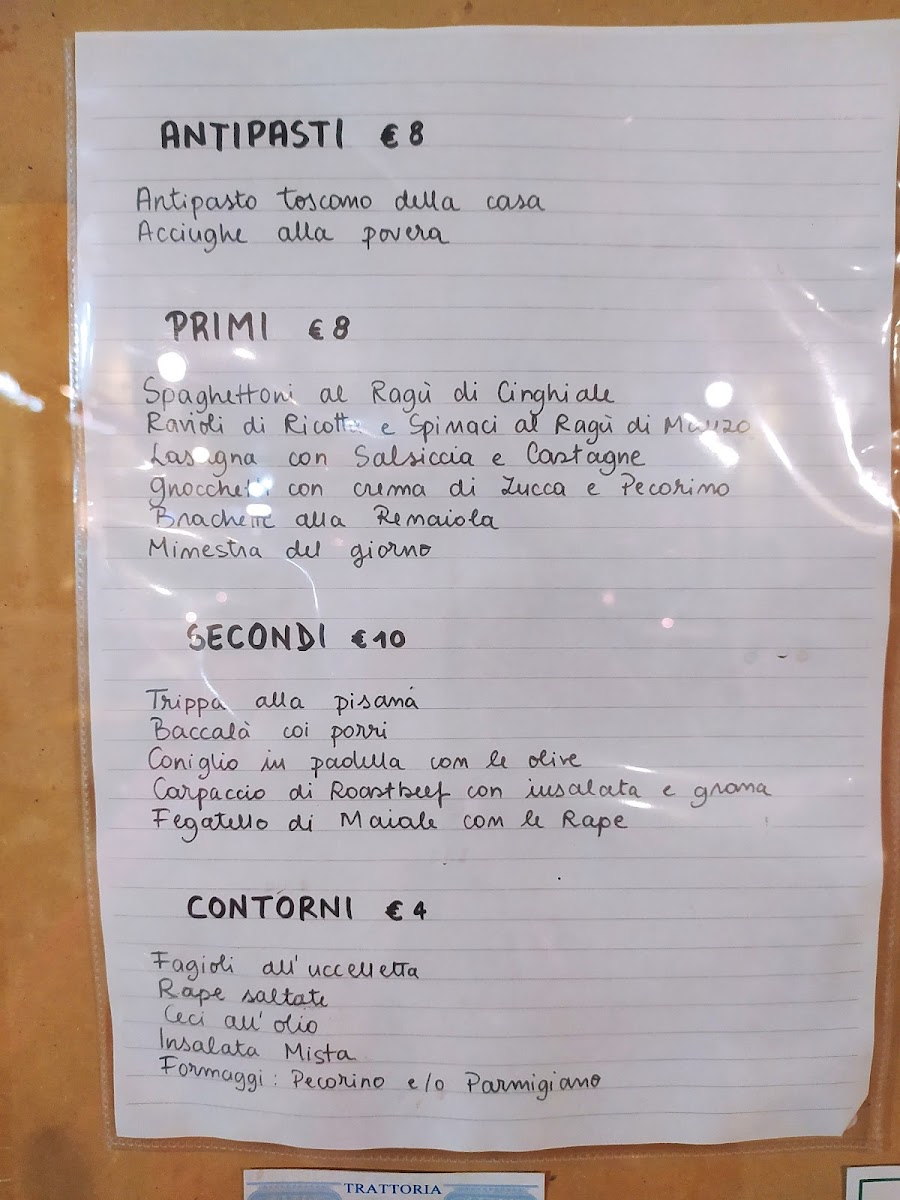 ANTIPASTI € 8
Antipasto toscano della casa
Acciughe alla povera
PRIMI € 8
Spaghettoni al Ragù di Cinghiale
Ravioli di Ricotta e Spinaci al Ragù di Manzo
Lasagna con Salsiccia e Castagne
Gnocchetti con crema di Zucca e Pecorino
Brachette alla Renaiola
Minestra del giorno
SECONDI € 10
Trippa alla pisana
Baccalà coi porri
Coniglio in padella con le olive
Carpaccio di Roastbeef con insalata e grana
Fegatello di Maiale con le Rape
CONTORNI € 4
Fagioli all'uccelletta
Rape saltate
Ceci all'olio
Insalata Mista
Formaggi: Pecorino e/o Parmigiano
TRATTORIA